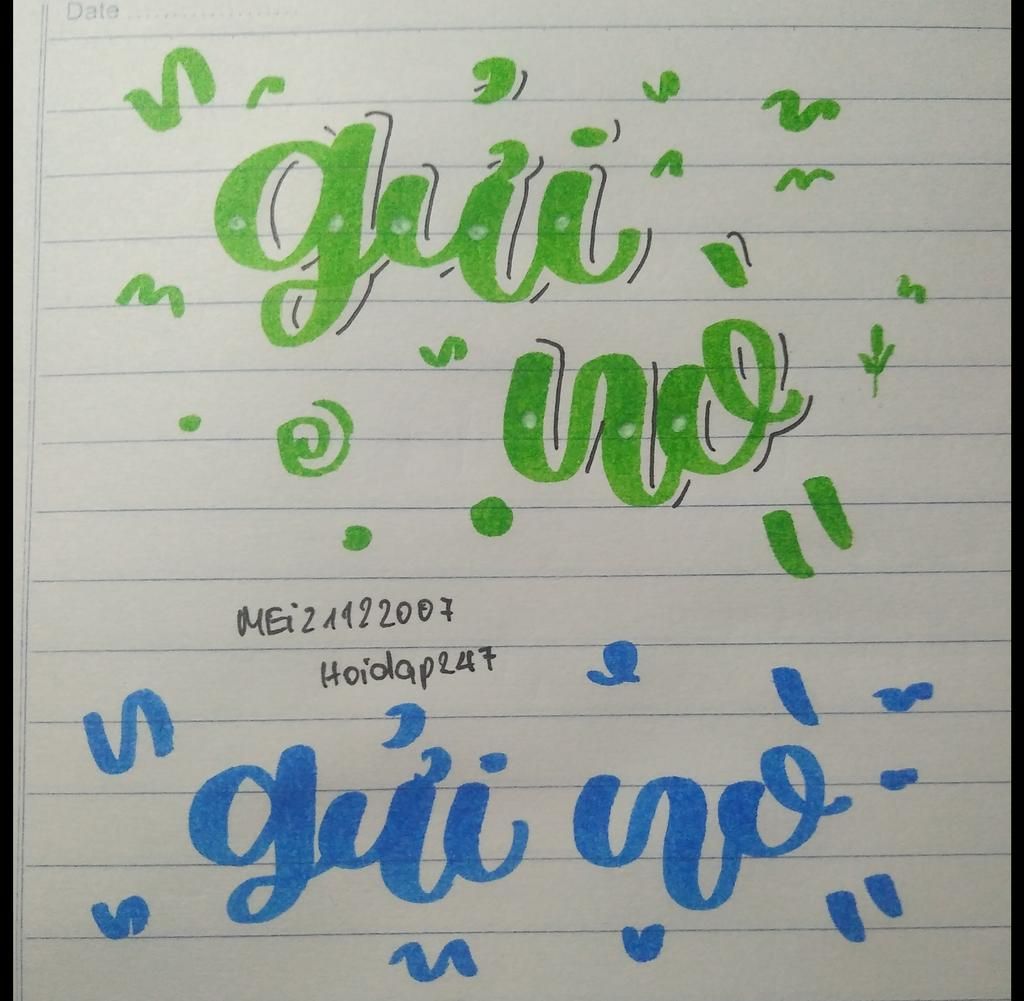 Date
gửi
nò
MEi21122007
Hoidap247
gửi nò